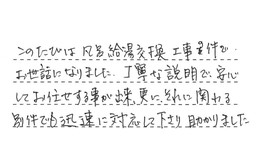 このたびは 風呂給湯交換 工事の件で
お世話になりました。丁寧な説明で安心
してお任せする事が出来、更に、それに関わる
別件でも迅速に対応して下さり助かりました